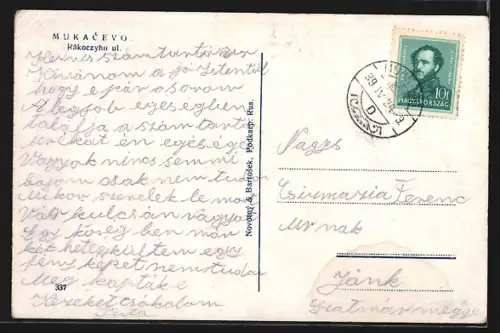 MUKAČEVO.
Rákoczyho ul.
Kedves számtartó úr
Kivánom a jó Istentöl
hogy e pár sorom
A legjob egeségben
találja a számtartó
urékat én egesége
Vagyok nincs semmi
bajom csak nem tudom
Mikor szerelek le most
Vár kulcsán vagyok
Egy község ben már
két hete küldtem egy
fény képet nem tudom
Meg kapták e
Kezeket csókolom
Pista
337
Novotný & Bartošek, Podkarp. Rus.
10f
MAGYARORSZÁG
39 IV. 24
D
Nagys
Csizmazia Ferenc
Urnak
Jánk
Szatmár megye